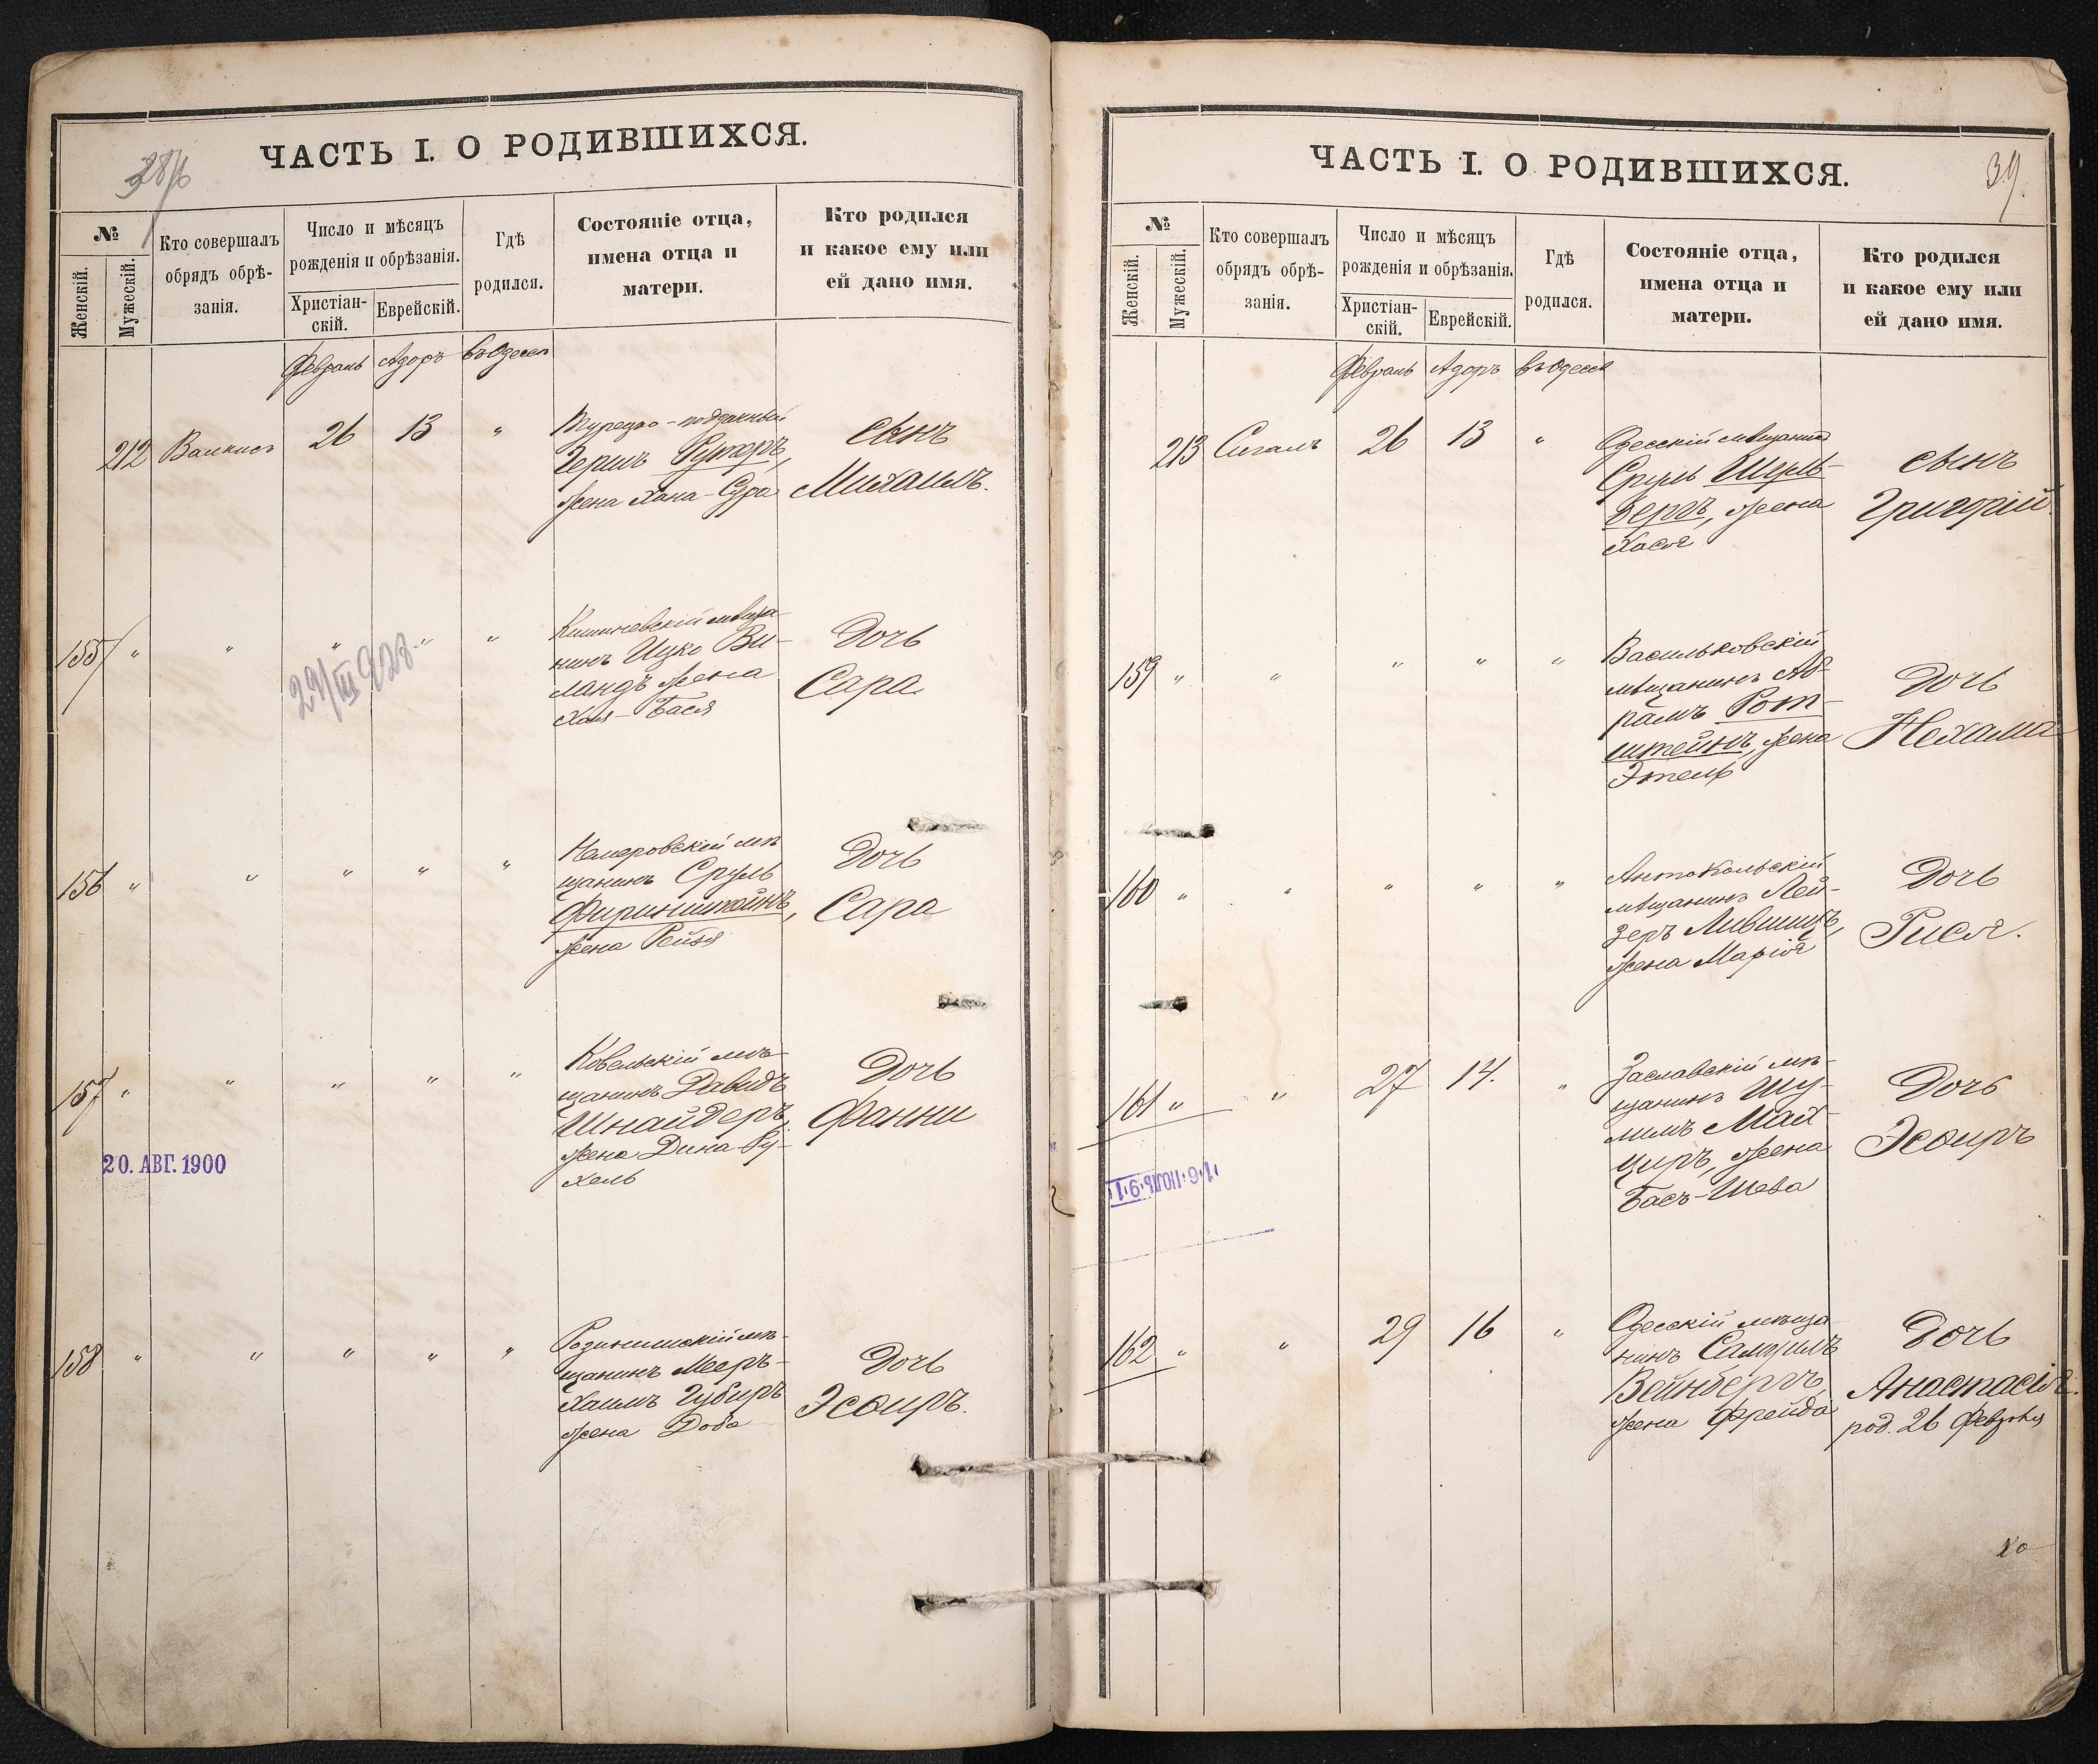 ЧАСТЬ I. О РОДИВШИХСЯ.
№
Женскій.
Мужескій.
Кто совершалъ
обрядъ обрѣ-
занія.
Число и мѣсяцъ
рожденія и обрѣзанія.
Христіан-
скій.
Еврейскій.
Гдѣ
родился.
Состояніе отца,
имена отца и
матери.
Кто родился
и какое ему или
ей дано имя.
Февраль Адоръ въ Одессѣ
212 26 13 "
Турецко-подданный
Гершъ
жена Хана-Сура
сынъ
Михаилъ.
155 " " " " "
29/III 928.
Кишиневскій мѣща-
нинъ Ицко Ви-
ландъ жена
Хая-Бася
Дочь
Сара
156 " " " " "
Немеровскій мѣ
щанинъ Сруль
жена Рейзя
Дочь
Сара
157 " " " " "
20. АВГ. 1900
Ковельскій мѣ
щанинъ Давидъ
Шнайдеръ,
жена Дина-Ру-
хель
Дочь
Фанни
158 " " " " "
щанинъ Мееръ-
Хаимъ Губиръ
жена Доба
Дочь
Эсѳиръ.
ЧАСТЬ I. О РОДИВШИХСЯ.
39.
№
Женскій.
Мужескій.
Кто совершалъ
обрядъ обрѣ-
занія.
Число и мѣсяцъ
рожденія и обрѣзанія.
Христіан-
скій.
Еврейскій.
Гдѣ
родился.
Состояніе отца,
имена отца и
матери.
Кто родился
и какое ему или
ей дано имя.
Февраль Адоръ въ Одессѣ
213 Сигалъ 26 13 "
Одесскій мѣщанинъ
Сруль Шуль-
бергъ, жена
Хася
сынъ
Григорій
159 " " " " "
Васильковскій
мѣщанинъ Аб-
рамъ Рот-
штейнъ, жена
Этель
Дочь
Нехама
160 " " " " "
Антокольскій
мѣщанинъ Лей-
зеръ Лившицъ,
жена Марія
Дочь
Рися.
161 " " 27 14. "
16 ИЮЛЬ 91
Заславскій мѣ-
щанинъ Шу-
лимъ Май-
циръ, жена
Басъ-Шева
Дочь
Эсѳиръ
162 " " 29 16 "
Одесскій мѣща
нинъ Самуилъ
Вейнбергъ,
жена Фрейда
Дочь
Анастасія.
род. 26 Февраля